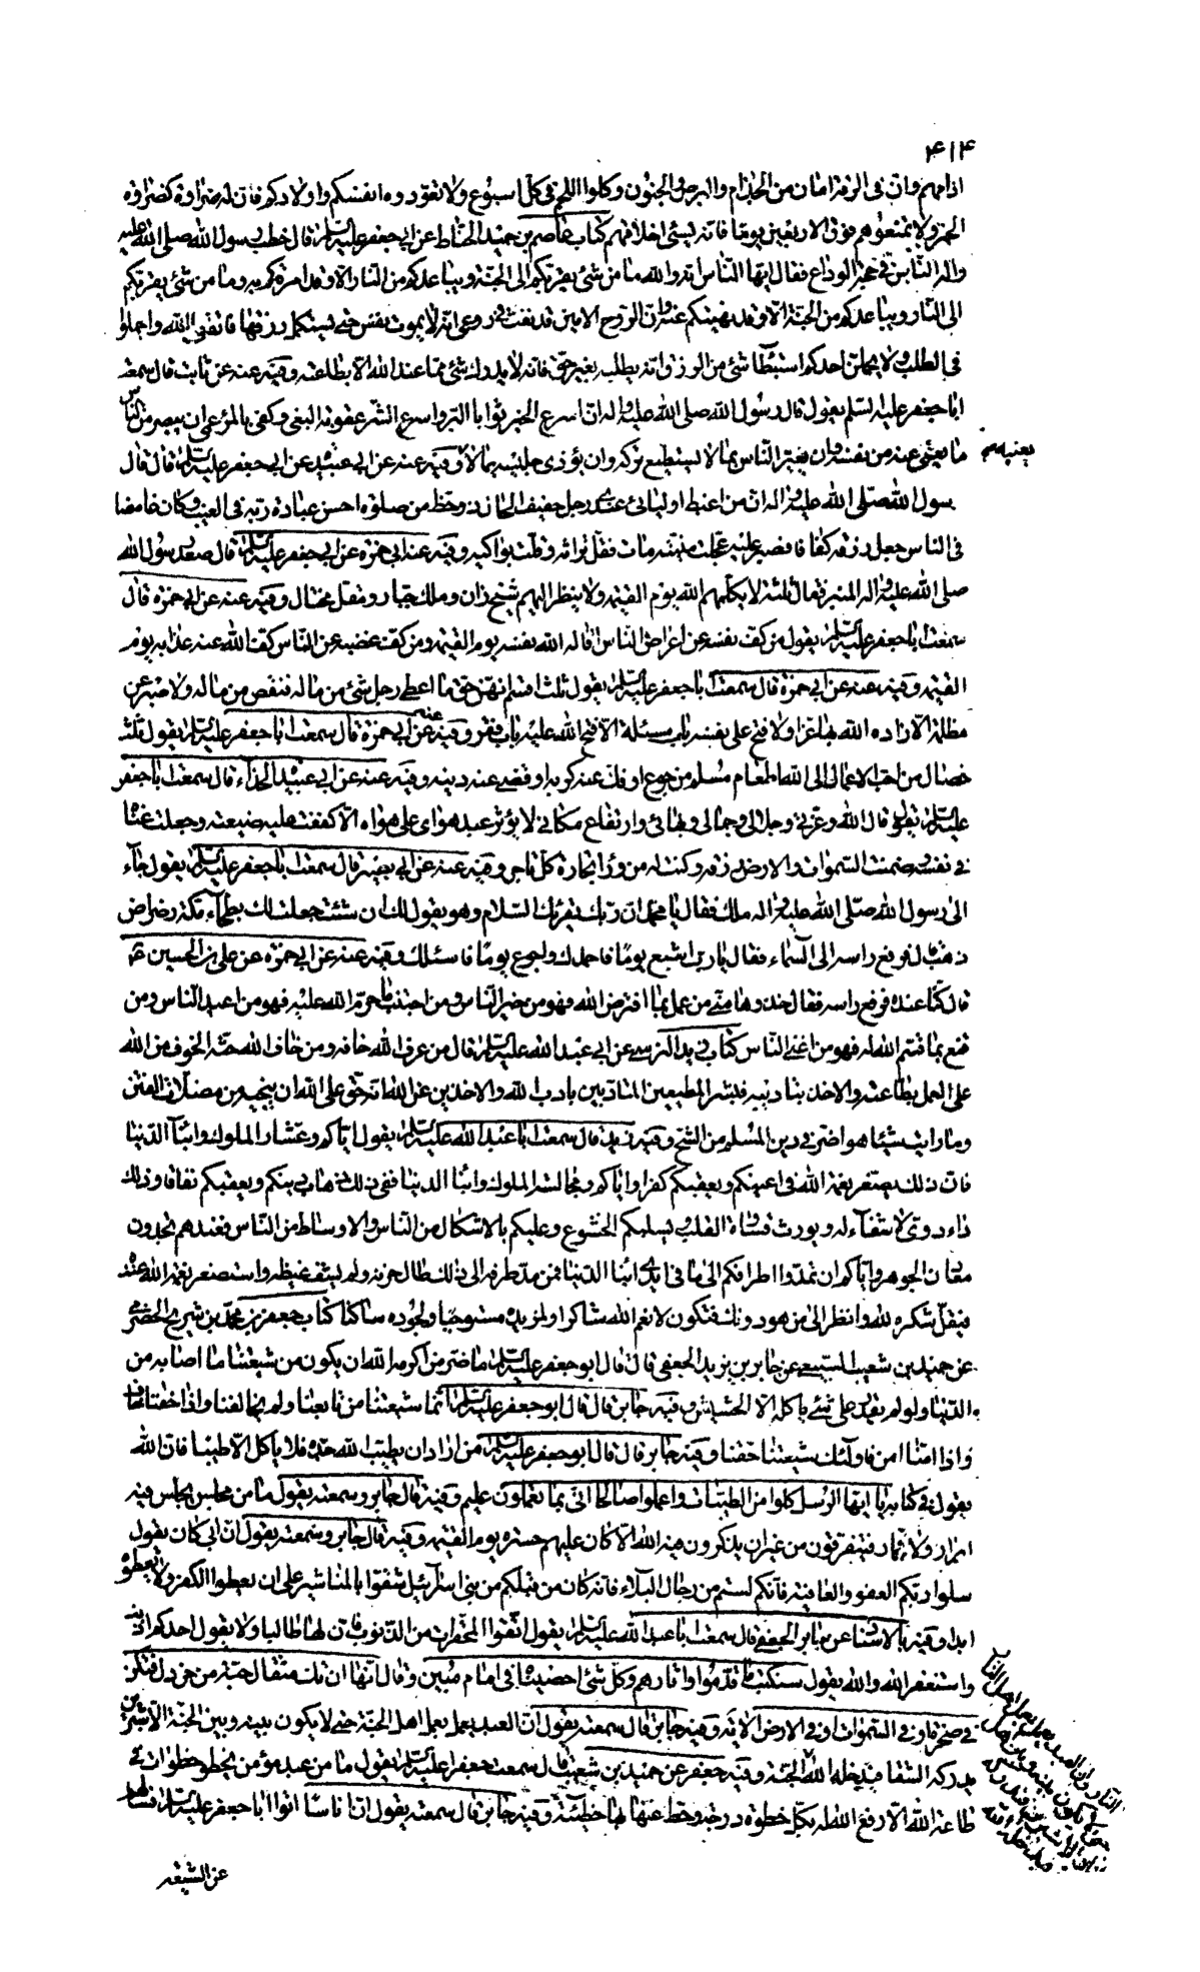 ۴۱۴
فان في امان من الجذام والبرص والجنون وكلوا اللحم في كل اسبوع ولا تعودوه انفسكم واولادكم فان له ضراوة كضراوة
الخمر ولا تمنعوهم فوق الاربعين يوما فانه يسيئ اخلاقهم كتاب عاصم بن حميد الحناط عن ابي جعفر عليه السلام قال خطب رسول الله صلى الله عليه
واله الناس في حجة الوداع فقال ايها الناس انه والله ما من شئ يقربكم الى الجنة ويباعدكم من النار الا وقد امرتكم به وما من شئ يقربكم
الى النار ويباعدكم من الجنة الا وقد نهيتكم عنه وان الروح الامين قد نفث في روعي انه لا يموت نفس حتى يستكمل رزقها فاتقوا الله واجملوا
في الطلب ولا يحملن احدكم استبطاء شئ من الرزق انه يطلبه بغير حق فانه لا يدرك شئ مما عند الله الا بطاعته وفيه عنه عن ثابت قال سمعت
ابا جعفر عليه السلام يقول قال رسول الله صلى الله عليه واله ان اسرع الخير ثوابا البر واسرع الشر عقوبة البغي وكفى بالمرء عمى ان يبصر من الناس
ما يعمى عنه من نفسه وان يعير الناس بما لا يستطيع تركه وان يؤذي جليسه بما لا يعنيه وفيه عنه عن ابي عبيدة عن ابي جعفر عليه السلام قال قال
رسول الله صلى الله عليه واله ان من اغبط اوليائي عندي رجل خفيف الحال ذو حظ من صلوة احسن عبادة ربه في الغيب وكان غامضا
في الناس جعل رزقه كفافا فصبر عليه عجلت منيته مات فقل تراثه وقلت بواكيه وفيه عنه عن ابي حمزة عن ابي جعفر عليه السلام قال صعد رسول الله
صلى الله عليه واله المنبر فقال ثلثة لا يكلمهم الله يوم القيمة ولا ينظر اليهم شيخ زان وملك جبار ومقل مختال وفيه عنه عن ابي حمزة قال
سمعت ابا جعفر عليه السلام يقول من كف نفسه عن اعراض الناس اقاله الله نفسه يوم القيمة ومن كف غضبه عن الناس كف الله عنه عذاب يوم
القيمة وفيه عنه عن ابي حمزة قال سمعت ابا جعفر عليه السلام يقول ثلث اقسم انهن حق ما اعطى رجل شئ من ماله فنقص من ماله ولا صبر عن
مظلمة الا زاده الله بها عزا ولا فتح على نفسه باب مسئلة الا فتح الله عليه باب فقر وفيه عنه عن ابي حمزة قال سمعت ابا جعفر عليه السلام يقول ثلث
خصال من احب الاعمال الى الله اطعام مسلم من جوع او فك عنه كربه او قضى عنه دينه وفيه عنه عن ابي عبيدة الحذاء قال سمعت ابا جعفر
عليه السلام يقول قال الله وعزتي وجلالي وجمالي وبهائي وارتفاع مكاني لا يؤثر عبد هواي على هواه الا كففت عليه ضيعته وجعلت غناه
في نفسه وضمنت السموات والارض رزقه وكنت له من وراء تجارة كل تاجر وفيه عنه عن ابي بصير قال سمعت ابا جعفر عليه السلام يقول جاء
الى رسول الله صلى الله عليه واله ملك فقال يا محمد ان ربك يقرئك السلام وهو يقول لك ان شئت جعلت لك بطحاء مكة رضراض
ذهب قال فرفع راسه الى السماء فقال يا رب اشبع يوما فاحمدك واجوع يوما فاسئلك وفيه عنه عن ابي حمزة عن علي بن الحسين ع
قال كنا عنده فرفع راسه فقال خذوها مني من عمل بما افترض الله فهو من خير الناس ومن اجتنب ما حرم الله عليه فهو من اعبد الناس ومن
قنع بما قسم الله له فهو من اغنى الناس كتاب زيد الزراد عن ابي عبد الله عليه السلام قال من عرف الله خافه ومن خاف الله حثه الخوف من الله
على العمل بطاعته والاخذ بتاديبه فبشر المطيعين المتادبين بادب الله والاخذين عن الله انه حق على الله ان ينجيه من مضلات الفتن
وما رايت شيئا هو اضر في دين المسلم من الشح وفيه زيد قال سمعت ابا عبد الله عليه السلام يقول اياكم وعشار الملوك وابناء الدنيا
فان ذلك يصغر نعمة الله في اعينكم ويعقبكم كفرا واياكم ومجالسة الملوك وابناء الدنيا ففي ذلك ذهاب دينكم ويعقبكم نفاقا وذلك
داء دوي لا شفاء له ويورث قساوة القلب ويسلبكم الخشوع وعليكم بالاشكال من الناس والاوساط من الناس فعندهم تجدون
معادن الجوهر واياكم ان تمدوا اطرافكم الى ما في ايدي ابناء الدنيا فمن مد طرفه الى ذلك طال حزنه ولم يشف غيظه واستصغر نعمة الله عنده
فيقل شكره لله وانظر الى من هو دونك فتكون لانعم الله شاكرا ولمزيده مستوجبا ولجوده ساكنا كتاب جعفر بن محمد بن شريح الحضرمي
عن حميد بن شعيب السبيعي عن جابر بن يزيد الجعفي قال قال ابو جعفر عليه السلام ما ضر من اكرمه الله ان يكون من شيعتنا ما اصابه من
الدنيا ولو لم يقدر على شئ ياكله الا الحشيش وفيه جابر قال قال ابو جعفر عليه السلام انما شيعتنا من تابعنا ولم يخالفنا واذا خفنا خاف
واذا امنا امن فاولئك شيعتنا حقا وفيه جابر قال قال ابو جعفر عليه السلام من اراد ان يطيب الله فلا ياكل الا طيبا فان الله
يقول في كتابه يا ايها الرسل كلوا من الطيبات واعملوا صالحا اني بما تعملون عليم وفيه قال جابر وسمعته يقول ما من مجلس يجلس فيه
ابرار ولا فجار فيتفرقون من غير ان يذكرون فيه الله الا كان عليهم حسرة يوم القيمة وفيه قال جابر وسمعته يقول ان ابي كان يقول
سلوا ربكم العفو والعافية فانكم لستم من رجال البلاء فانه كان من قبلكم من بني اسرائيل شقوا بالمناشير على ان يعطوا الكفر ولا يعطوه
ابدا وفيه بالاسناد عن جابر الجعفي قال سمعت ابا عبد الله عليه السلام يقول اتقوا المحقرات من الذنوب فان لها طالبا ولا يقول احدكم اذنب
واستغفر الله والله يقول سنكتب ما قدموا واثارهم وكل شئ احصيناه في امام مبين وقال انها ان تك مثقال حبة من خردل فتكن
في صخرة او في السموات او في الارض الاية وفيه جابر قال سمعته يقول ان العبد يعمل بعمل اهل الجنة حتى لا يكون بينه وبين الجنة الا شبر
يدركه الشقا فيدخله الله الجنة وفيه جعفر عن حميد بن شعيب قال سمعت جعفرا عليه السلام يقول ما من عبد مؤمن يخطو خطوات في
طاعة الله الا رفع الله له بكل خطوة درجة وحط عنها بها خطيئة وفيه جابر قال سمعته يقول ان ناسا اتوا ابا جعفر عليه السلام فسالهم
عن الشيعة